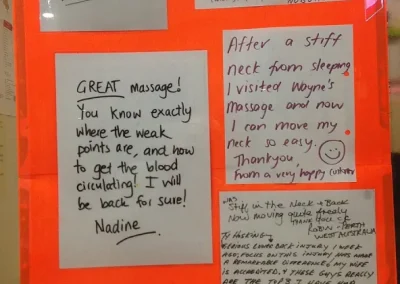 GREAT massage!
You know exactly
where the weak
points are, and how
to get the blood
circulating! I will
be back for sure!
Nadine
After a stiff
neck from sleeping
I visited Wayne's
Massage and now
I can move my
neck so easy.
Thankyou,
from a very happy customer
WAS
Stiff in the Neck & Back
Now moving quite freely
THANK YOU
ROBIN - PERTH
WEST AUSTRALIA
SERIOUS LOWER BACK INJURY 1 WEEK
AGO, FOCUS ON THIS INJURY HAS MADE
A REMARKABLE DIFFERENCE, MY WIFE
IS ACCREDITED, & THESE GUYS REALLY
ARE THE TOPS I HAVE HAD